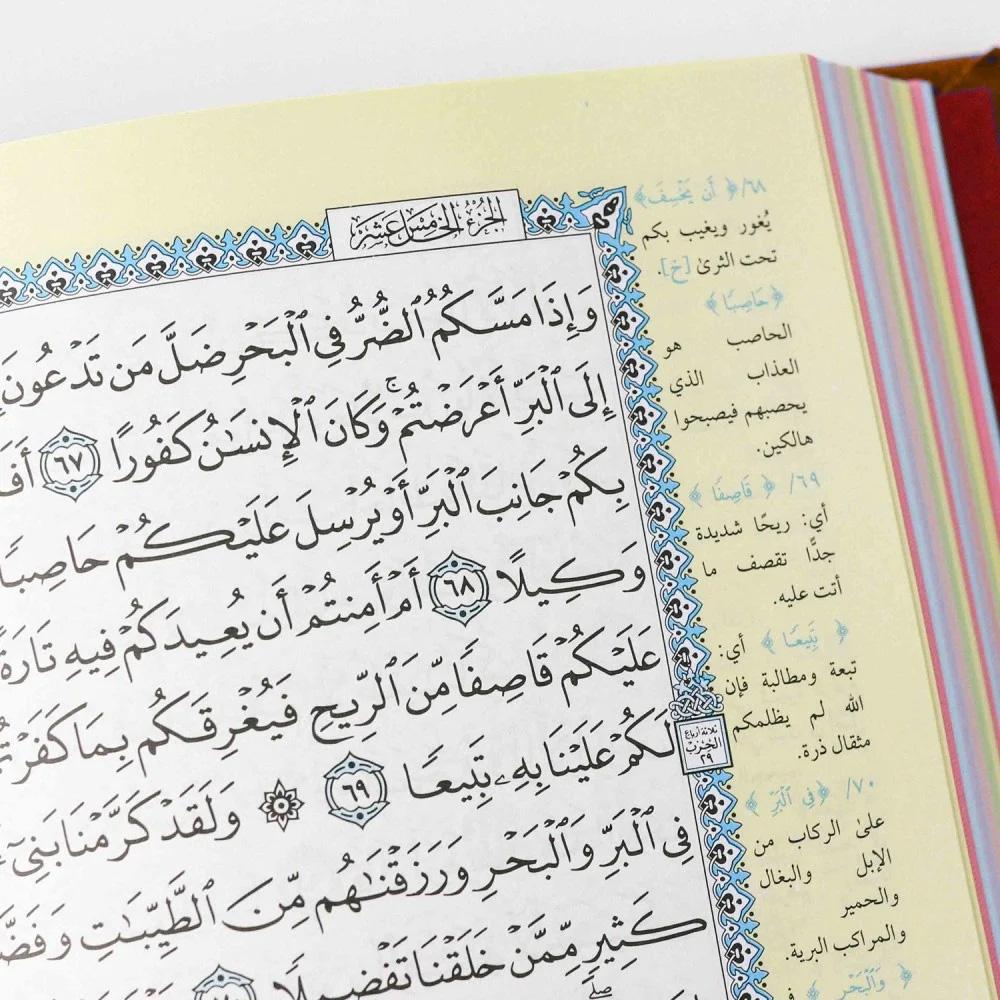 الجُزْءُ الخَامِسَ عَشَرَ
وَإِذَا مَسَّكُمُ ٱلضُّرُّ فِي ٱلْبَحْرِ ضَلَّ مَن تَدْعُونَ
إِلَى ٱلْبَرِّ أَعْرَضْتُمْ ۚ وَكَانَ ٱلْإِنسَـٰنُ كَفُورًا ٦٧
بِكُمْ جَانِبَ ٱلْبَرِّ أَوْ يُرْسِلَ عَلَيْكُمْ حَاصِبًا
وَكِيلًا ٦٨ أَمْ أَمِنتُمْ أَن يُعِيدَكُمْ فِيهِ تَارَةً
عَلَيْكُمْ قَاصِفًا مِّنَ ٱلرِّيحِ فَيُغْرِقَكُم بِمَا كَفَرْتُمْ
لَكُمْ عَلَيْنَا بِهِۦ تَبِيعًا ٦٩ ۞ وَلَقَدْ كَرَّمْنَا بَنِىٓ
فِي ٱلْبَرِّ وَٱلْبَحْرِ وَرَزَقْنَـٰهُم مِّنَ ٱلطَّيِّبَـٰتِ
كَثِيرٍ مِّمَّنْ خَلَقْنَا تَفْضِيلًا ٧٠
ثلاثة أرباع
الحزب
٢٩
٦٨/ ﴿ أَن يَخْسِفَ ﴾
يُغور ويغيب بكم
تحت الثرىٰ [خ].
﴿ حَاصِبًا ﴾
الحاصب هو
العذاب الذي
يحصبهم فيصبحوا
هالكين.
٦٩/ ﴿ قَاصِفًا ﴾
أي: ريحًا شديدة
جدًّا تقصف ما
أتت عليه.
﴿ تَبِيعًا ﴾ أي:
تبعة ومطالبة فإن
الله لم يظلمكم
مثقال ذرة.
٧٠/ ﴿ فِي ٱلْبَرِّ ﴾
علىٰ الركاب من
الإبل والبغال
والحمير
والمراكب البرية.
﴿ وَٱلْبَحْرِ ﴾